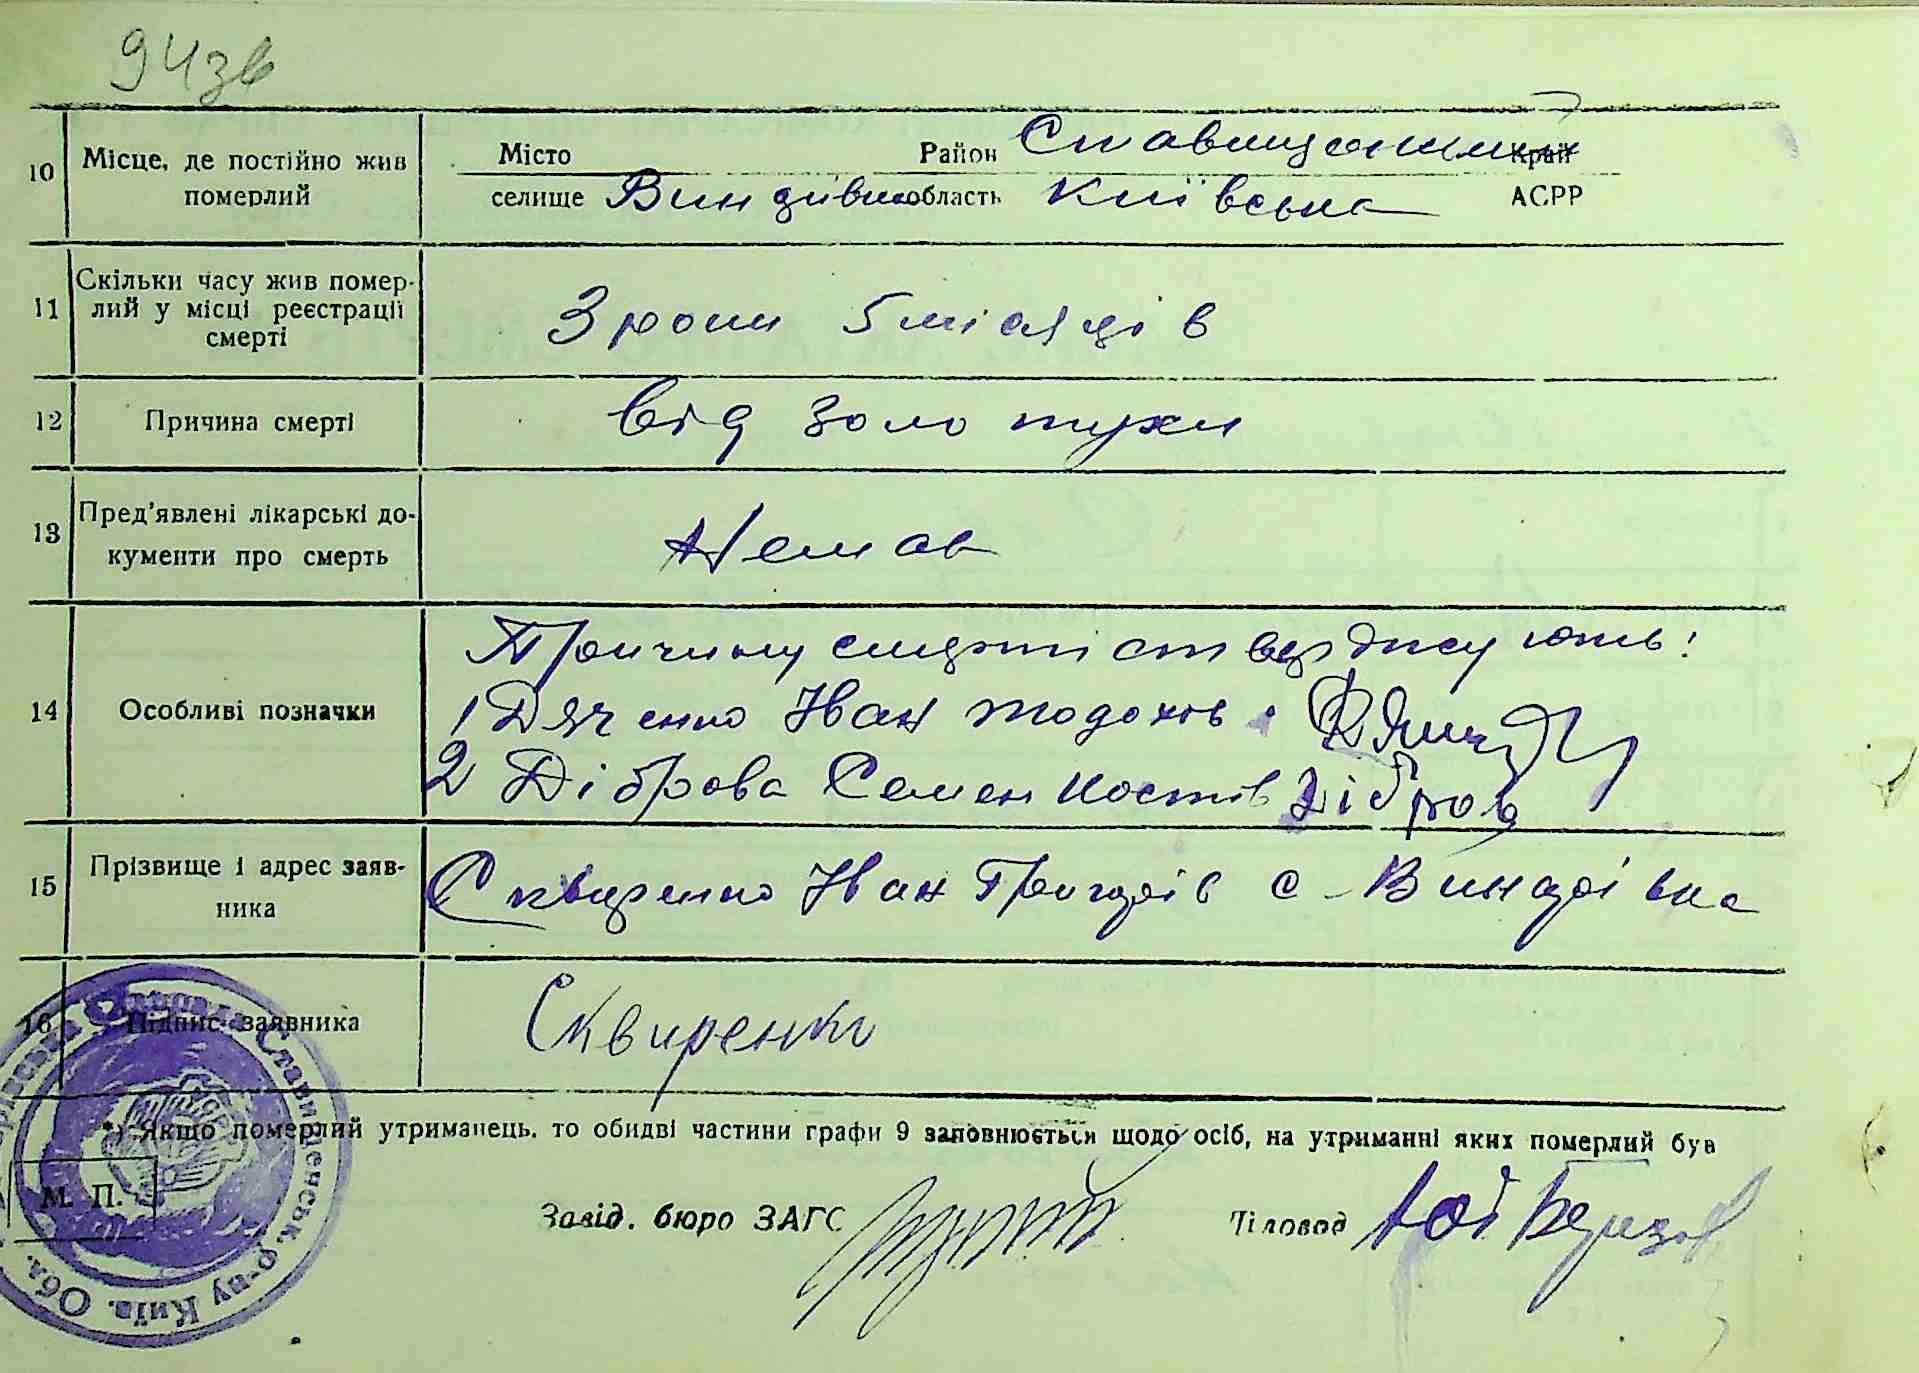 94зв
10 Місце, де постійно жив померлий
Місто Район Ставищенський Край
селище Винадівка область Київська АСРР
11 Скільки часу жив померлий у місці реєстрації смерті
3 роки 5 місяців
12 Причина смерті
Від золотухи
13 Пред'явлені лікарські документи про смерть
Немає
14 Особливі позначки
Причину смерті стверджують:
1 Дяченко Іван Тодохов
2 Діброва Семен Костів Діброва
15 Прізвище і адрес заявника
Сквиренко Іван Григорів с-Винадівка
16 Підпис заявника
Сквиренко
*) Якщо померлий утриманець, то обидві частини графи 9 заповнюється щодо осіб, на утриманні яких померлий був
М. П.
Завід. бюро ЗАГС
Діловод
Ставищенськ. р-ну Київ. Обл.